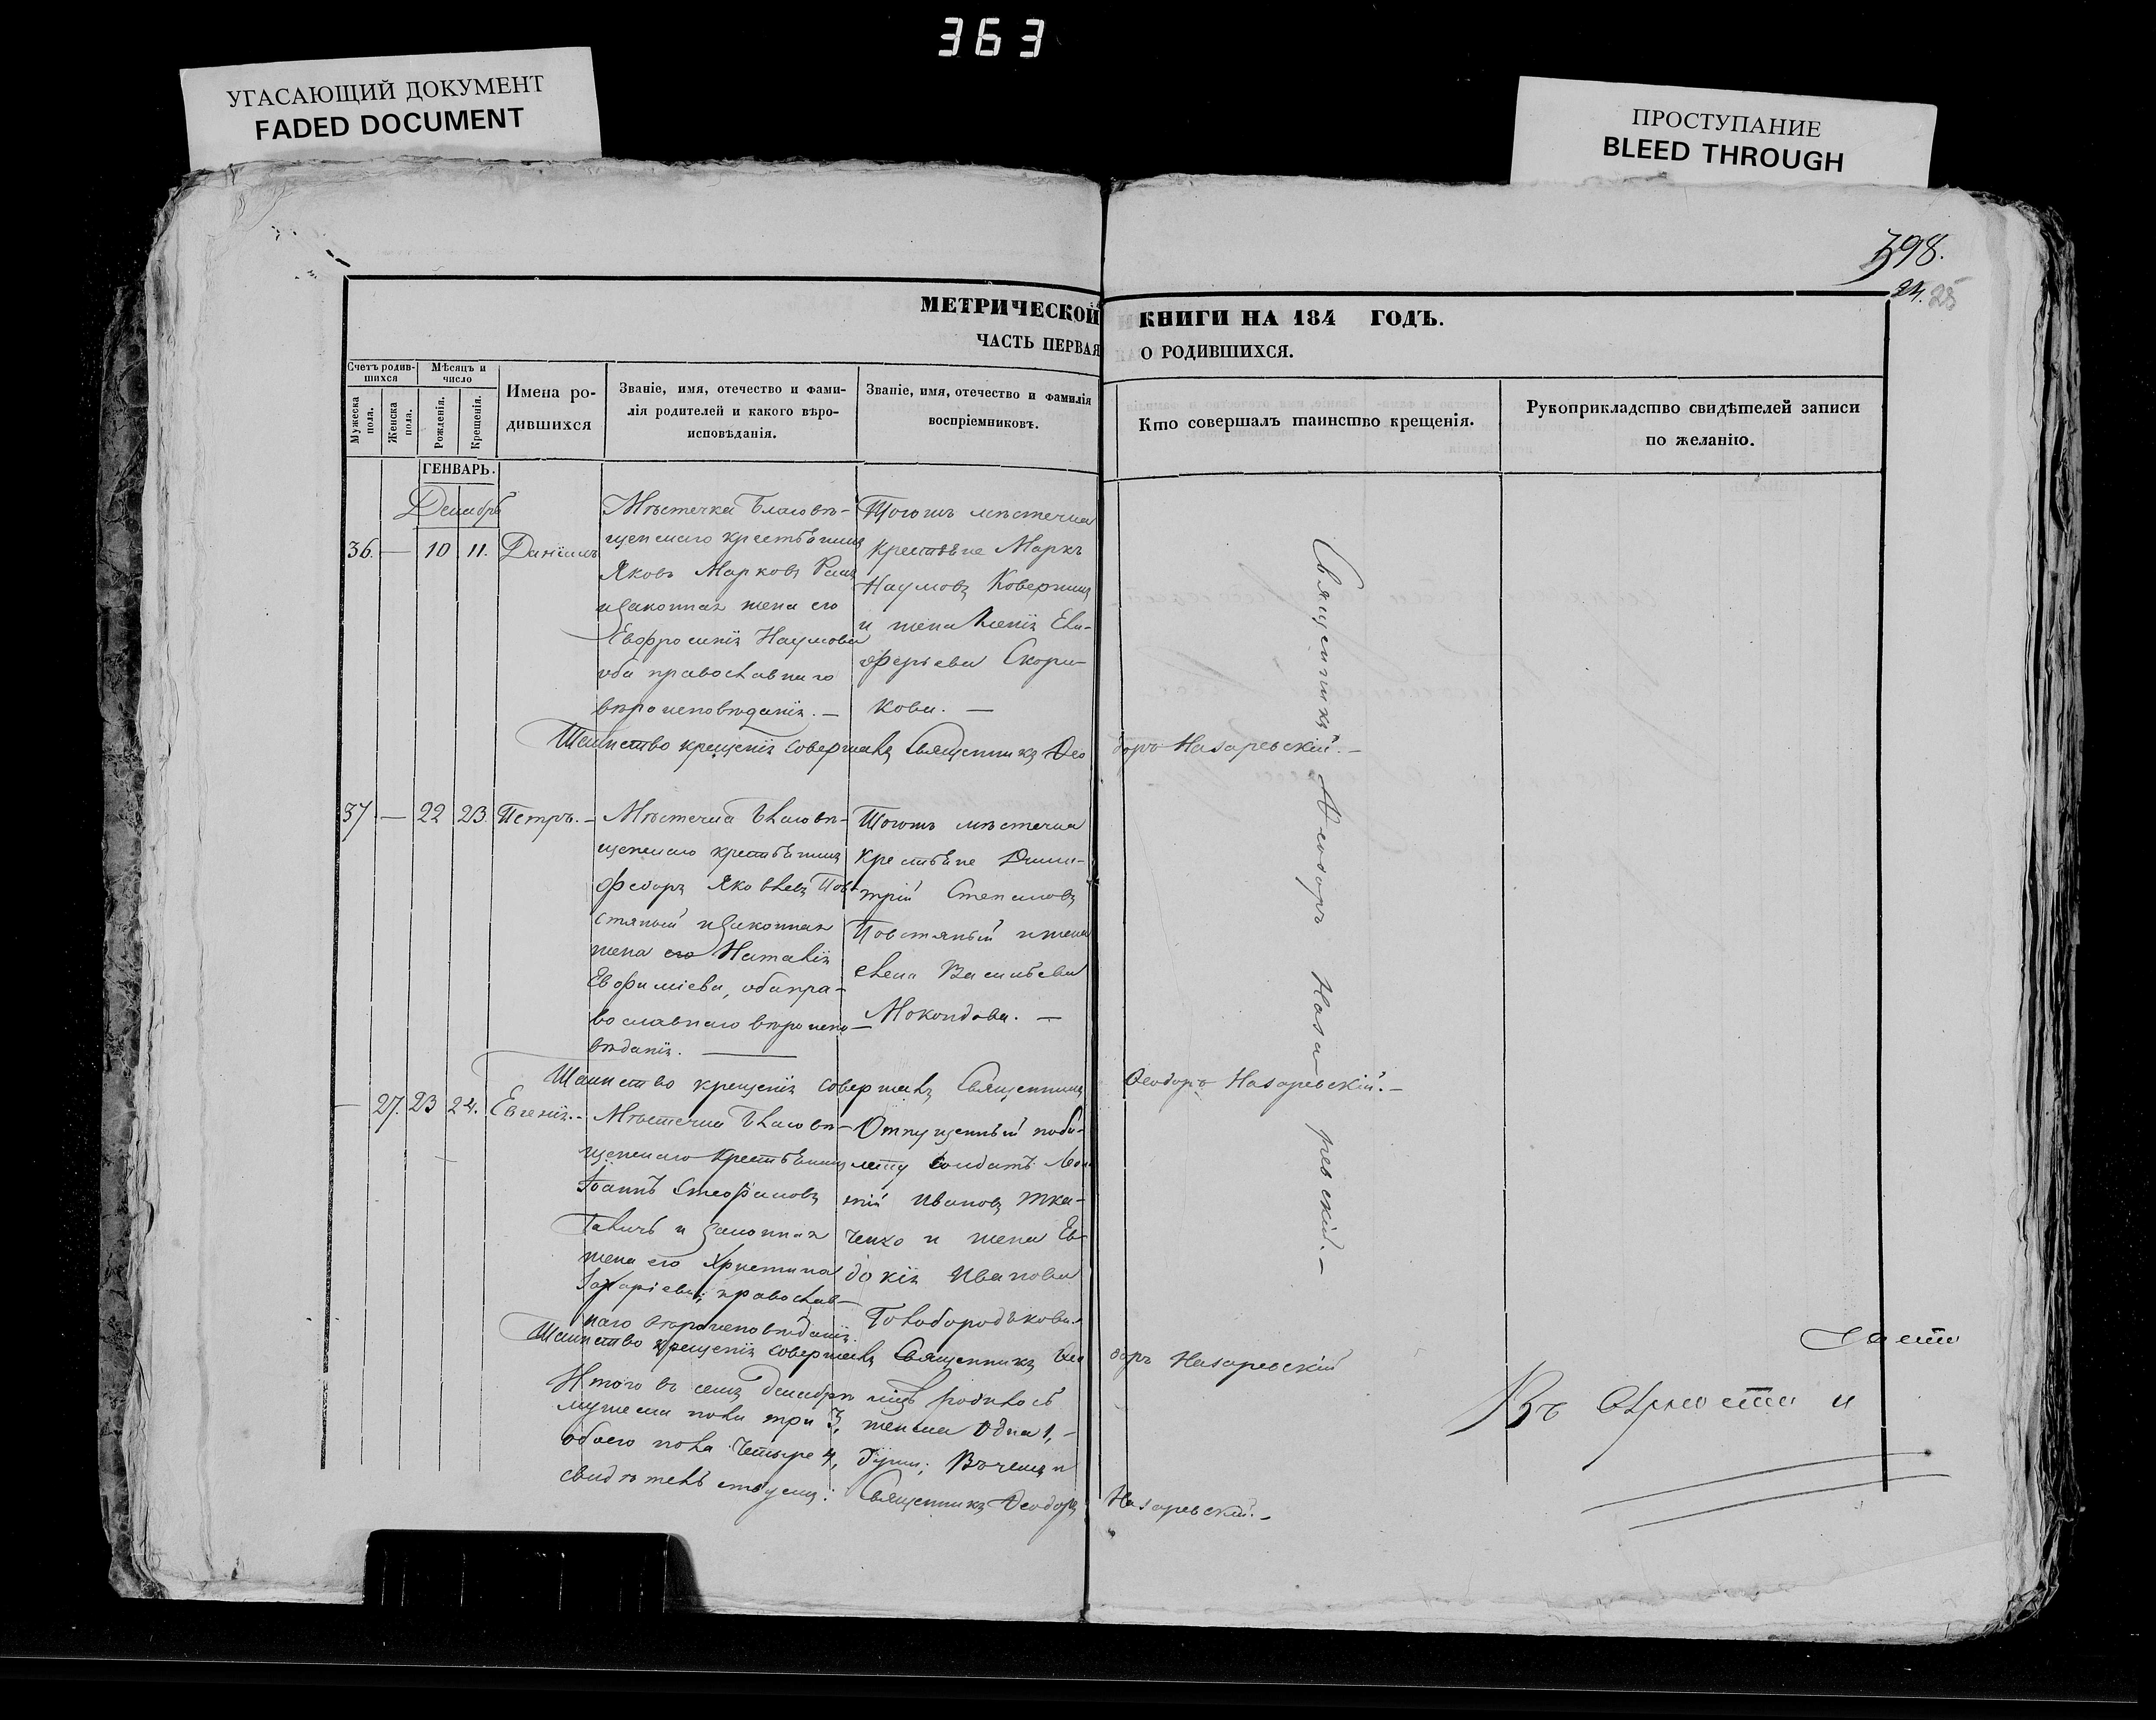 363
УГАСАЮЩИЙ ДОКУМЕНТ
FADED DOCUMENT
ПРОСТУПАНИЕ
BLEED THROUGH
398.
24. 25
МЕТРИЧЕСКОЙ КНИГИ НА 184 ГОДЪ.
ЧАСТЬ ПЕРВАЯ О РОДИВШИХСЯ.
Счетъ родившихся
Мужеска пола.
Женска пола.
Мѣсяцъ и число
Рожденія.
Крещенія.
Имена родившихся
Званіе, имя, отечество и фамилія родителей и какого вѣроисповѣданія.
Званіе, имя, отечество и фамилія воспріемниковъ.
Кто совершалъ таинство крещенія.
Рукоприкладство свидѣтелей записи по желанію.
ГЕНВАРЬ.
Декабрь
36. — 10 11. Даніилъ
Мѣстечка Благовѣ-
щенскаго крестьянинъ
Яковъ Марковъ
и законная жена его
Евфросинія Наумова
оба православнаго
вѣроисповѣданія. —
Тогожъ мѣстечка
крестьяне Маркъ
Наумовъ
и жена Ксенія Ели-
ферьева Скори-
кова. —
Таинство крещенія совершалъ Священникъ Ѳео
доръ Назаревскій. —
37 — 22 23. Петръ. —
Мѣстечка Благовѣ-
щенскаго крестьянинъ
Федоръ Яковлевъ Пов-
стяный и законная
жена его Наталія
Евфиміева, оба пра-
вославнаго вѣроиспо-
вѣданія. —
Тогожъ мѣстечка
крестьяне Дими-
трій Степановъ
Повстяный и жена
Елена Васильева
Мокондова. —
Таинство крещенія совершалъ Священникъ
Ѳеодоръ Назаревскій. —
— 27. 23 24. Евгенія. —
Мѣстечка Благовѣ-
щенскаго крестьянинъ
Іоаннъ Стефановъ
и законная
жена его Христина
Захаріева, православ-
наго вѣроисповѣданія.
Отпущенный поби-
лету солдатъ
Ивановъ Тка-
ченко и жена Ев-
докія Иванова
Голобородькова.
Таинство крещенія совершалъ Священникъ Ѳео
доръ Назаревскій
Итого въ семъ декабрѣ мцѣ родилось
мужеска пола три 3, женска одна 1, —
обоего пола четыре 4, души; Въ чемъ и
свидѣтельствуемъ: Священникъ Ѳеодоръ
Назаревскій. —
Священникъ Ѳеодоръ Назаревскій. —